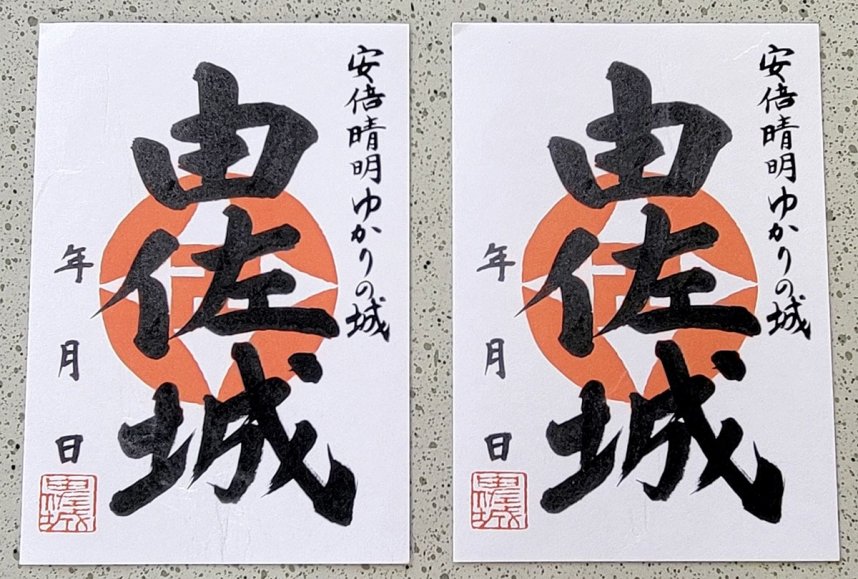 安倍晴明ゆかりの城
由佐城
年 月 日
由佐城
安倍晴明ゆかりの城
由佐城
年 月 日
由佐城